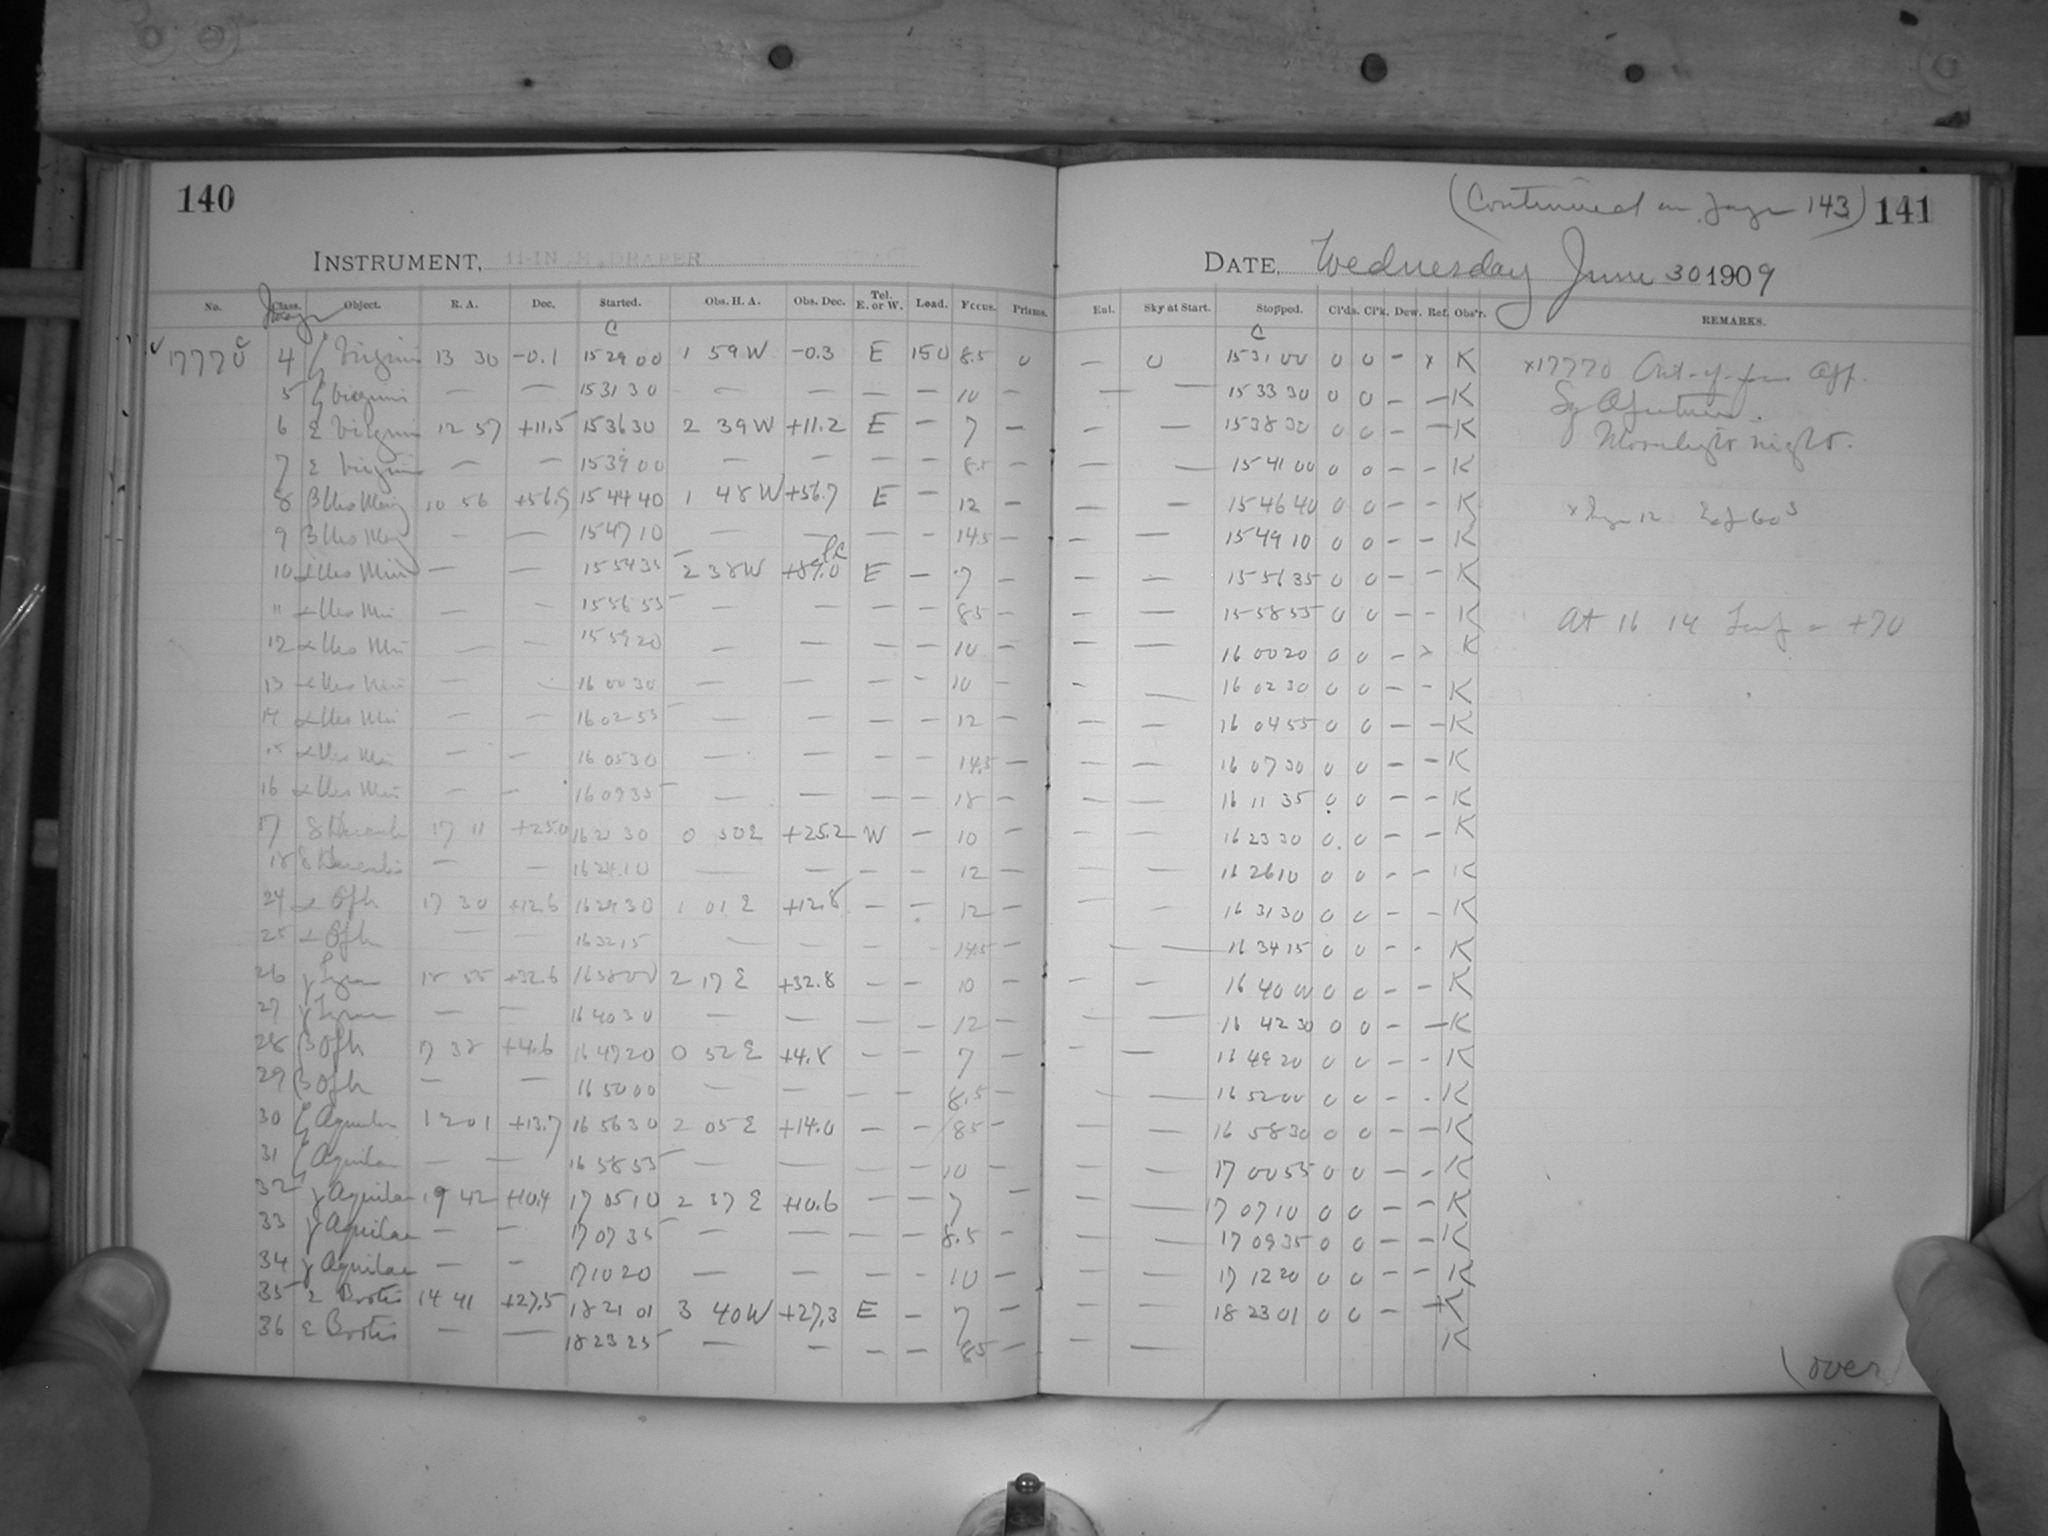 140
(Continued on page 143) 141
INSTRUMENT, 11-IN H. DRAPER
DATE, Wednesday June 30 1909
No. Class. Object. R. A. Dec. Started. Obs. H. A. Obs. Dec. Tel. E. or W. Load. Focus. Prisms. Enl. Sky at Start. Stopped. Cl'ds. Cl'k. Dew. Ref. Obs'r. REMARKS.
C C
17770 4 ζ Virginis 13 30 -0.1 15 29 00 1 59 W -0.3 E 150 8.5 0 — 0 15 31 00 0 0 - x K x17770 Out-of-focus
5 ζ Virginis — — 15 31 30 — — — — 10 — — 15 33 30 0 0 - - K
6 ε Virginis 12 57 +11.5 15 36 30 2 39 W +11.2 E — 7 — — — 15 38 30 0 0 - - K Moonlight night.
7 ε Virginis — — 15 39 00 — — — — 8.5 — — — 15 41 00 0 0 - - K
8 β Urs Maj 10 56 +56.9 15 44 40 1 48 W +56.7 E — 12 — — — 15 46 40 0 0 - - K 60s
9 β Urs Maj — — 15 47 10 — — — — 14.5 — — — 15 49 10 0 0 - - K
10 α Urs Min — — 15 54 35 2 38 W +89.0 E — 7 — — — 15 56 35 0 0 - - K
11 α Urs Min — — 15 56 55 — — — — 8.5 — — — 15 58 55 0 0 - - K At 16 14 = +70
12 α Urs Min — — 15 59 20 — — — — 10 — — — 16 00 20 0 0 - x K
13 α Urs Min — — 16 00 30 — — — — 10 — — — 16 02 30 0 0 - - K
14 α Urs Min — — 16 02 55 — — — — 12 — — — 16 04 55 0 0 - - K
15 α Urs Min — — 16 05 30 — — — — 14.5 — — — 16 07 30 0 0 - - K
16 α Urs Min — — 16 09 35 — — — — 18 — — — 16 11 35 0 0 - - K
17 δ Herculis 17 11 +25.0 16 21 30 0 50 E +25.2 W — 10 — — — 16 23 30 0 0 - - K
18 δ Herculis — — 16 24 10 — — — — 12 — — — 16 26 10 0 0 - - K
24 α Oph 17 30 +12.6 16 29 30 1 01 E +12.8 — — 12 — — — 16 31 30 0 0 - - K
25 α Oph — — 16 32 15 — — — — 14.5 — — — 16 34 15 0 0 - - K
26 γ Lyrae 18 55 +32.6 16 38 00 2 17 E +32.8 — — 10 — — — 16 40 00 0 0 - - K
27 γ Lyrae — — 16 40 30 — — — — 12 — — — 16 42 30 0 0 - - K
28 β Oph 17 38 +4.6 16 47 20 0 52 E +4.8 — — 7 — — — 16 49 20 0 0 - - K
29 β Oph — — 16 50 00 — — — — 8.5 — — — 16 52 00 0 0 - - K
30 ζ Aquilae 1901 +13.7 16 56 30 2 05 E +14.0 — — 8.5 — — — 16 58 30 0 0 - - K
31 ζ Aquilae — — 16 58 55 — — — — 10 — — — 17 00 55 0 0 - - K
32 γ Aquilae 19 42 +10.4 17 05 10 2 37 E +10.6 — — 7 — — — 17 07 10 0 0 - - K
33 γ Aquilae — — 17 07 35 — — — — 8.5 — — — 17 09 35 0 0 - - K
34 γ Aquilae — — 17 10 20 — — — — 10 — — — 17 12 20 0 0 - - K
35 ε Bootis 14 41 +27.5 18 21 01 3 40 W +27.3 E — 7 — — — 18 23 01 0 0 - - K
36 ε Bootis — — 18 23 25 — — — — 8.5 — — — K
(over)